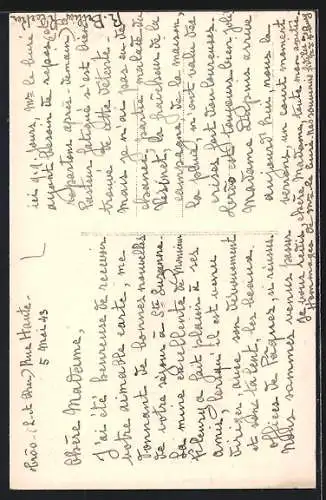 Trôo - (L-et-Cher) Rue Haute -
5 Mai 43
Chère Madame,
J'ai été heureuse de recevoir
votre aimable carte, me
donnant de bonnes nouvelles
de votre séjour à Ste Suzanne.
La mine excellente de Monsieur
Fleury a fait plaisir à ses
amis, lorsqu'il est venu
diriger, avec son dévouement
et son talent, les beaux
offices de Pâques, si réussis
Nous sommes venus passer
ici jours,
ayant besoin de repos
repartons après-demain)
fatigué s'est bien
trouvé de cette détente.
Mais je n'ai pas eu de
chance, partie malade de
la fraîcheur de la
campagne, de la maison,
la pluie, m'ont valu des
crises fort douloureuses
Trôo est toujours bien joli
Madame Dupuis arrive
aujourd'hui, nous la
verrons, un court moment
Je vous redis, chère Madame, toute mon
Hommages de Mr le Curé. Nos